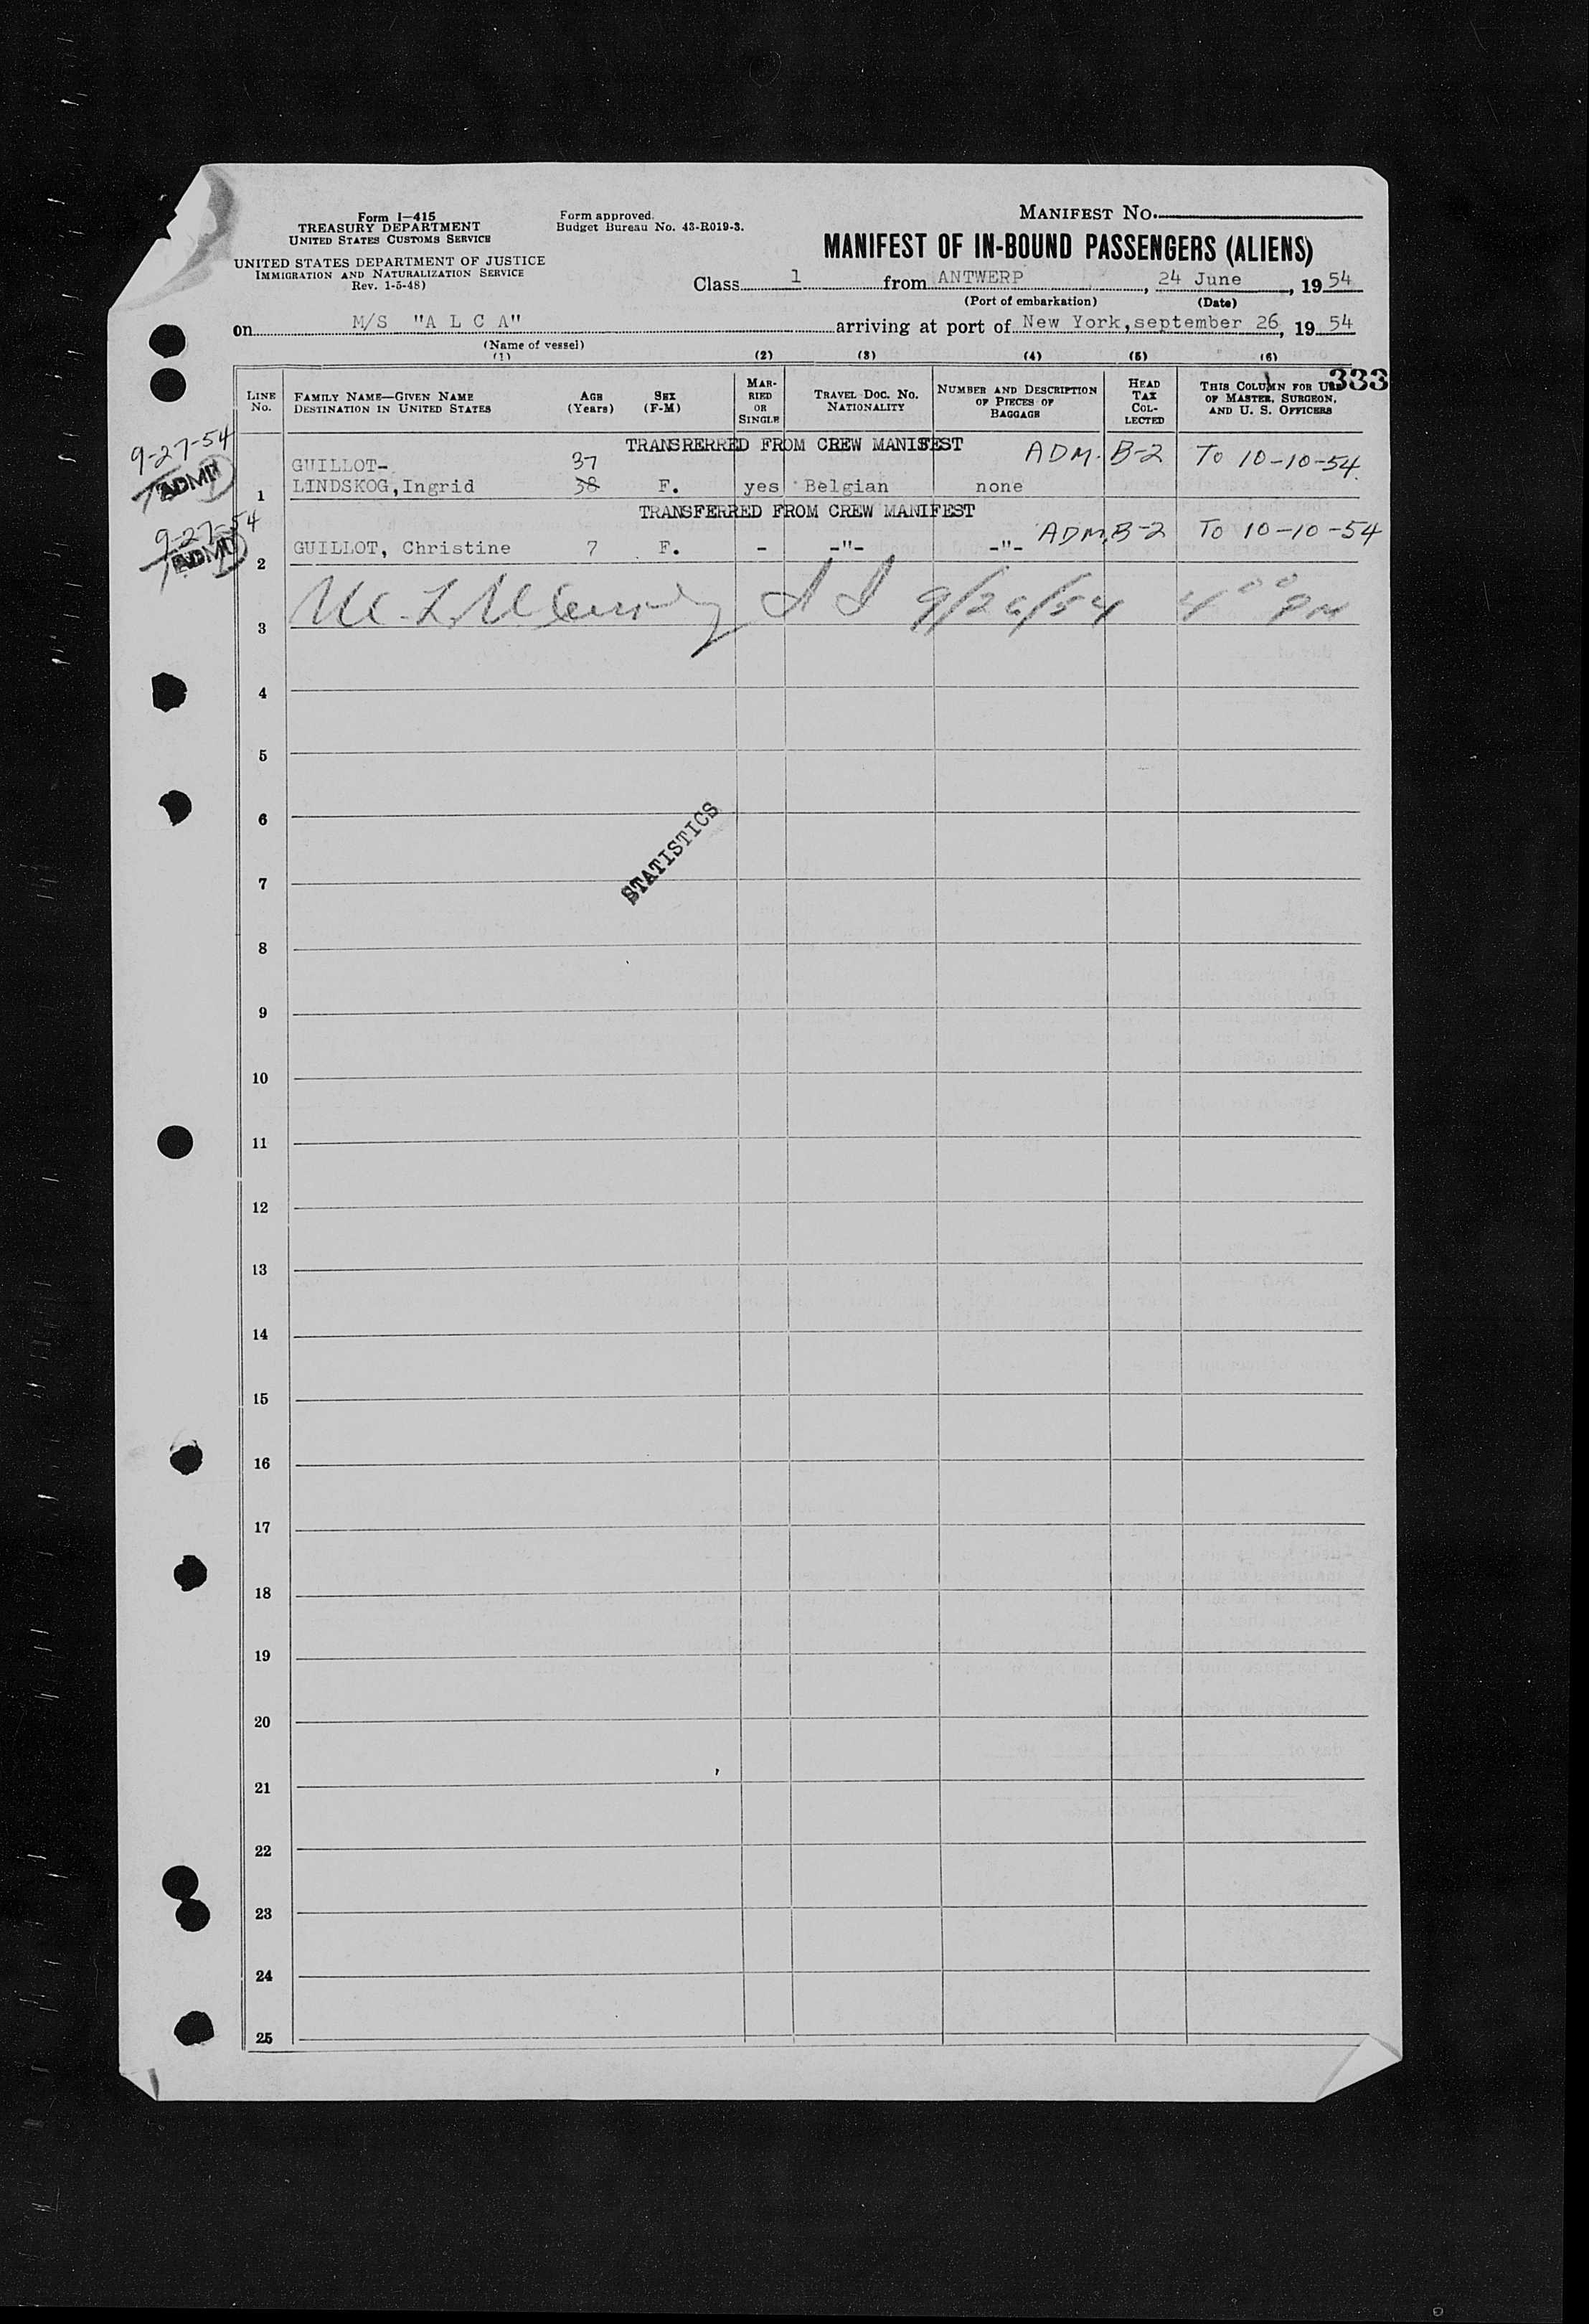 Form I-415
TREASURY DEPARTMENT
UNITED STATES CUSTOMS SERVICE
UNITED STATES DEPARTMENT OF JUSTICE
IMMIGRATION AND NATURALIZATION SERVICE
Rev. 1-5-48)
Form approved.
Budget Bureau No. 43-R019-3.
MANIFEST NO.
MANIFEST OF IN-BOUND PASSENGERS (ALIENS)
Class 1 from ANTWERP, 24 June, 19 54
(Port of embarkation) (Date)
on M/S "A L C A" arriving at port of New York, september 26, 19 54
(Name of vessel)
(1) (2) (3) (4) (5) (6)
333
LINE No.
FAMILY NAME—GIVEN NAME
DESTINATION IN UNITED STATES
AGE (Years)
SEX (F-M)
MARRIED OR SINGLE
TRAVEL DOC. NO. NATIONALITY
NUMBER AND DESCRIPTION OF PIECES OF BAGGAGE
HEAD TAX COLLECTED
THIS COLUMN FOR USE OF MASTER, SURGEON, AND U. S. OFFICERS
9-27-54
ADMD
TRANSRERRED FROM CREW MANISEST
ADM. B-2 To 10-10-54.
GUILLOT- 37
1 LINDSKOG,Ingrid 38 F. yes Belgian none
9-27-54
ADMD
TRANSFERRED FROM CREW MANIFEST
ADM. B-2 To 10-10-54
2 GUILLOT, Christine 7 F. - -"- -"-
3 9/26/54 4 00 PM
4
5
6
STATISTICS
7
8
9
10
11
12
13
14
15
16
17
18
19
20
21
22
23
24
25